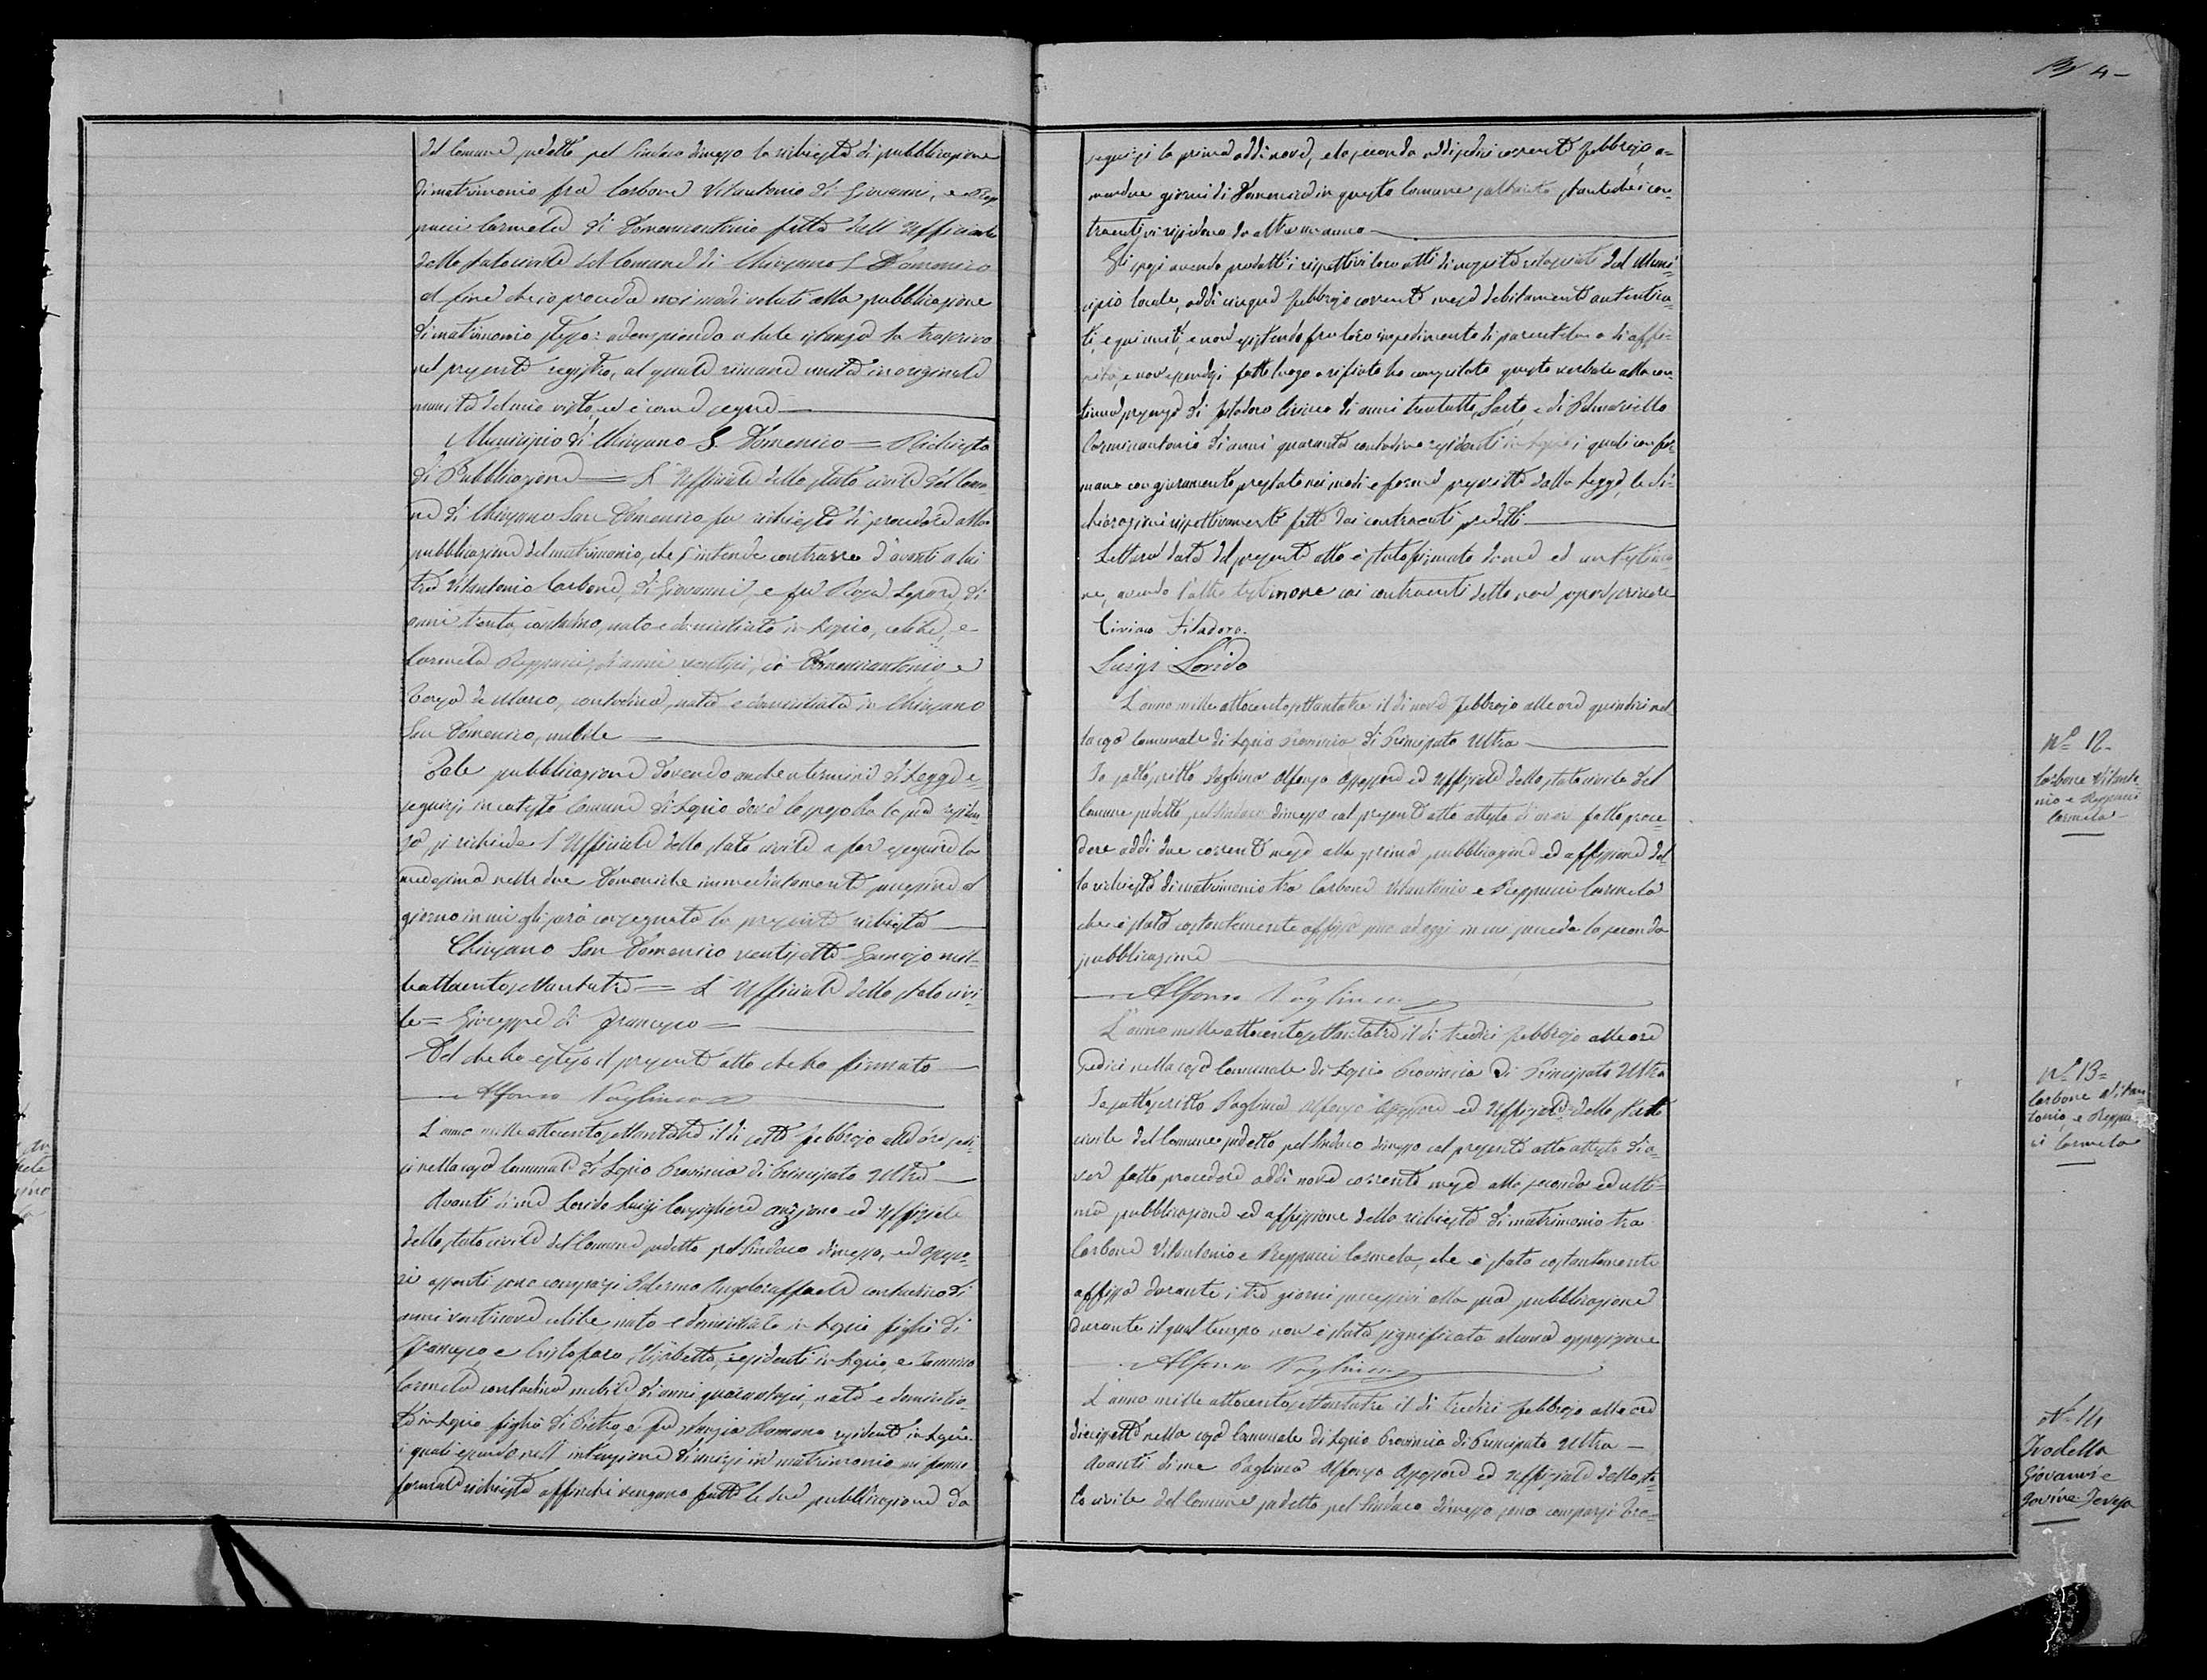 del Comune sudetto pel Sindaco dimesso la richiesta di pubblicazione
di matrimonio fra Carbone Vitantonio di Giovanni, e Rep
pucci Carmela di Domenicantonio fatta dall'Uffiziale
dello stato civile del Comune di Chiusano S. Domenico
al fine che io proceda nei modi voluti alla pubblicazione
di matrimonio stesso: adempiendo a tale istanza la trascrivo
nel presente registro, al quale rimane unita in originale
munita del mio visto, ed è come segue
Municipio di Chiusano S. Domenico = Richiesta
di Pubblicazione = L'Uffiziale dello stato civile del Comu-
ne di Chiusano San Domenico fu richiesto di procedere alla
pubblicazione del matrimonio, che s'intende contrarre d'avanti a lui
tra Vitantonio Carbone, di Giovanni, e fu Rosa Lepore, di
anni trenta, contadino, nato e domiciliato in Lapio, celibe, e
Carmela Reppucci, di anni ventisei, di Domenicantonio, e
Teresa de Marco, contadina, nata e domiciliata in Chiusano
San Domenico, nubile
Tale pubblicazione dovendo anche a termini di Legge e-
seguirsi in cotesto Comune di Lapio dove lo sposo ha la sua residen
za si richiede l'Uffiziale dello stato civile a far eseguire la
medesima nelle due Domeniche immediatamente successive al
giorno in cui gli sarà consegnata la presente richiesta
Chiusano San Domenico ventisette Gennajo mil-
leottocentosettantatre = L'Uffiziale dello stato civi-
le = Giuseppe di Francesco =
Del che ho esteso il presente atto che ho firmato
Alfonso Vaglineca
L'anno milleottocentosettantatre il di sette febbrajo alle ore sedi-
ci nella casa Comunale di Lapio Provincia di Principato Ultra
Avanti di me Lorido Luigi Consigliere anziano ed Uffiziale
dello stato civile del Comune sudetto pel Sindaco dimesso, ed Assesso-
ri assenti sono comparsi Palermo Angeloraffaele contadino di
anni ventinove celibe nato e domiciliato in Lapio figlio di
Francesco e Cristofaro Elisabetta, residenti in Lapio, e Jannino
Carmela contadina nubile di anni quarantasei, nata e domicilia-
ta in Lapio figlia di Pietro, e fu Romano residente in Lapio
i quali essendo nell'intenzione di unirsi in matrimonio mi fanno
formale richiesta affinchè vengano fatte le due pubblicazione da
4-
seguirsi la prima addi nove, e la seconda addi sedici corrente febbrajo, a-
mendue giorni di Domenica in questo Comune soltanto stantechè i con-
traenti vi risiedono da oltre un anno
Gli sposi avendo prodotti i rispettivi loro atti di nascita rilasciati dal Muni-
cipio locale, addi cinque febbrajo corrente mese debitamente autentica-
ti, e qui uniti, e non esistendo fra loro impedimento di parentela o di affi-
nità, e non essendosi fatto luogo a rifiuto ho compilato questo verbale alla con-
tinua presenza di Filadoro Ciriaco di anni trentotto, Sarto e di Palmariello
Carminantonio di anni quaranta contadino residenti in Lapio i quali confer-
mano con giuramento prestato nei modi e forme prescritte dalla Legge, le di-
chiarazioni rispettivamente fatte dai contraenti sudetti
Lettura data del presente atto è stato firmato da me ed un testimo-
ne, avendo l'altro testimone coi contraenti detto non saper scrivere
Ciriaco Filadoro.
Luigi Lorido
L'anno milleottocentosettantatre il di nove febbrajo alle ore quindici nel
la casa Comunale di Lapio Provincia di Principato Ultra
Io sottoscritto Vaglineca Alfonso Assessore ed Uffiziale dello stato civile del
Comune sudetto, pel Sindaco dimesso col presente atto attesto di aver fatto proce-
dere addi due corrente mese alla prima pubblicazione ed affissione del-
la richiesta di matrimonio tra Carbone Vitantonio e Reppucci Carmela
che è stata costantemente affissa sino ad oggi in cui succede la seconda
pubblicazione
Alfonso Vaglineca
L'anno milleottocentosettantatre il di tredici febbrajo alle ore
sedici nella casa Comunale di Lapio Provincia di Principato Ultra
Io sottoscritto Vaglineca Alfonso Assessore ed Uffiziale dello stato
civile del Comune sudetto pel Sindaco dimesso col presente atto attesto di a-
ver fatto procedere addi nove corrente mese alla seconda ed ulti-
ma pubblicazione ed affissione della richiesta di matrimonio tra
Carbone Vitantonio e Reppucci Carmela, che è stata costantemente
affissa durante i tre giorni successivi alla sua pubblicazione
durante il qual tempo non è stata significata alcuna opposizione
Alfonso Vaglineca
L'anno milleottocentosettantatre il di tredici febbrajo alle ore
diecissette nella casa Comunale di Lapio Provincia di Principato Ultra
Avanti di me Vaglineca Alfonso Assessore ed Uffiziale dello sta-
to civile del Comune sudetto pel Sindaco dimesso, sono comparsi Tro-
No 12-
Carbone Vitanto-
nio e Reppucci
Carmela
No 13=
Carbone Vitan-
tonio, e Reppuc-
ci Carmela
No 14
Trodella
Giovanni e
Jovine Teresa